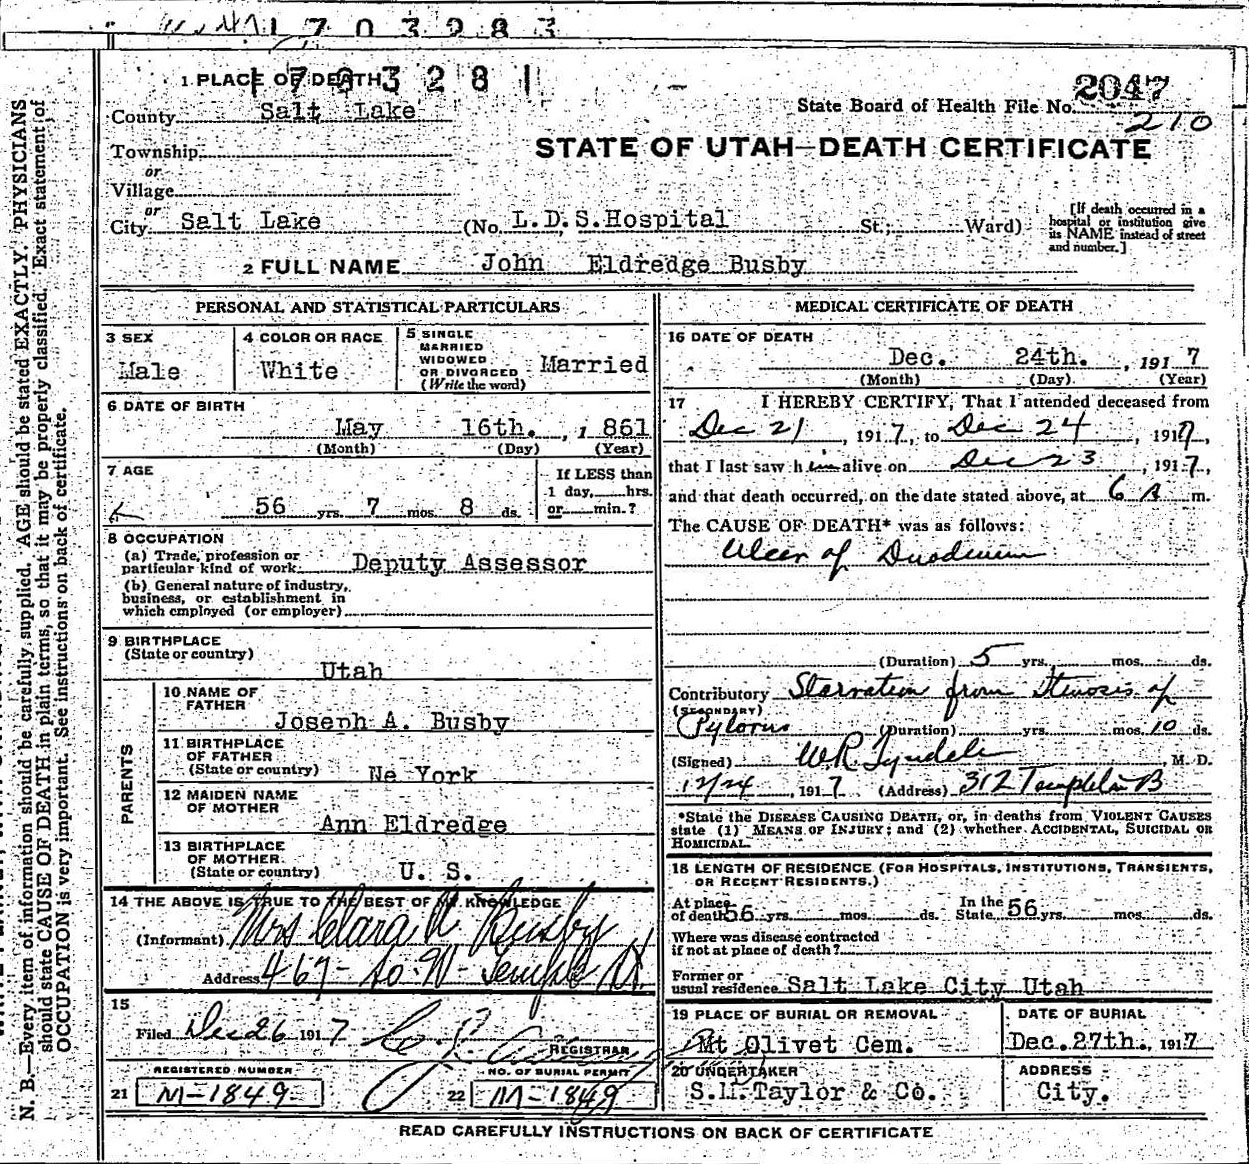 1703283
1703281
1 PLACE OF DEATH
County Salt Lake
Township
or
Village
or
City Salt Lake
State Board of Health File No. 2047
210
STATE OF UTAH—DEATH CERTIFICATE
(No. L.D.S. Hospital St.; Ward)
[If death occurred in a
hospital or institution give
its NAME instead of street
and number.]
2 FULL NAME John Eldredge Busby
PERSONAL AND STATISTICAL PARTICULARS
3 SEX
Male
4 COLOR OR RACE
White
5 SINGLE
MARRIED
WIDOWED
OR DIVORCED
(Write the word)
Married
6 DATE OF BIRTH
May 16th. , 1861
(Month) (Day) (Year)
7 AGE
56 yrs. 7 mos. 8 ds.
If LESS than
1 day, hrs.
or min.?
8 OCCUPATION
(a) Trade, profession or
particular kind of work Deputy Assessor
(b) General nature of industry,
business, or establishment in
which employed (or employer)
9 BIRTHPLACE
(State or country)
Utah
PARENTS
10 NAME OF
FATHER
Joseph A. Busby
11 BIRTHPLACE
OF FATHER
(State or country) Ne York
12 MAIDEN NAME
OF MOTHER
Ann Eldredge
13 BIRTHPLACE
OF MOTHER.
(State or country) U. S.
14 THE ABOVE IS TRUE TO THE BEST OF MY KNOWLEDGE
(Informant) Mrs Clara A Busby
Address 467 - So. W - Temple St.
15
Filed Dec 26 1917
REGISTRAR
REGISTERED NUMBER
21 M-1849
NO. OF BURIAL PERMIT
22 M-1849
MEDICAL CERTIFICATE OF DEATH
16 DATE OF DEATH
Dec. 24th. , 1917
(Month) (Day) (Year)
17 I HEREBY CERTIFY, That I attended deceased from
Dec 21 , 1917, to Dec 24 , 1917,
that I last saw him alive on Dec 23 , 1917,
and that death occurred, on the date stated above, at 6 A m.
The CAUSE OF DEATH* was as follows:
Ulcer of Duodenum
(Duration) 5 yrs. mos. ds.
Contributory Starvation from Stenosis of
(SECONDARY)
Pylorus (Duration) yrs. mos. 10 ds.
(Signed) W R Tyndale M. D.
12/24 , 1917 (Address) 312 Templeton B
*State the DISEASE CAUSING DEATH, or, in deaths from VIOLENT CAUSES
state (1) MEANS OF INJURY; and (2) whether ACCIDENTAL, SUICIDAL OR
HOMICIDAL.
18 LENGTH OF RESIDENCE (FOR HOSPITALS, INSTITUTIONS, TRANSIENTS,
OR RECENT RESIDENTS.)
At place
of death 56 yrs. mos. ds.
In the
State 56 yrs. mos. ds.
Where was disease contracted
if not at place of death?
Former or
usual residence Salt Lake City Utah
19 PLACE OF BURIAL OR REMOVAL
Mt Olivet Cem.
DATE OF BURIAL
Dec. 27th., 1917
20 UNDERTAKER
S.M. Taylor & Co.
ADDRESS
City.
READ CAREFULLY INSTRUCTIONS ON BACK OF CERTIFICATE
N. B.—Every item of information should be carefully supplied. AGE should be stated EXACTLY. PHYSICIANS
should state CAUSE OF DEATH in plain terms, so that it may be properly classified. Exact statement of
OCCUPATION is very important. See instructions on back of certificate.